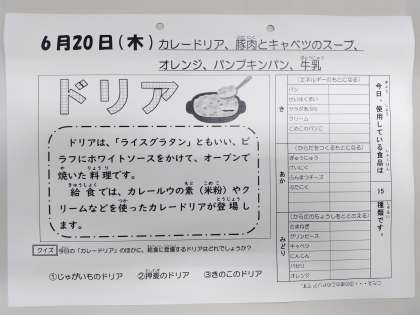 6月20日(木) カレードリア、豚肉とキャベツのスープ、
オレンジ、パンプキンパン、牛乳
ドリア
ドリアは、「ライスグラタン」ともいい、ピ
ラフにホワイトソースをかけて、オーブンで
焼いた料理です。
給食では、カレールウの素(米粉)やク
リームなどを使ったカレードリアが登場し
ます。
クイズ 今日の「カレードリア」のほかに、給食に登場するドリアはどれでしょうか?
①じゃがいものドリア ②押麦のドリア ③きのこのドリア
今日、使用している食品は
15
種類です。
き
(エネルギーのもとになる)
パン
サラダあぶら
クリーム
あか
(からだをつくるもとになる)
ぎゅうにゅう
ぶたにく
みどり
(からだのちょうしをととのえる)
たまねぎ
グリンピース
キャベツ
にんじん
パセリ
オレンジ